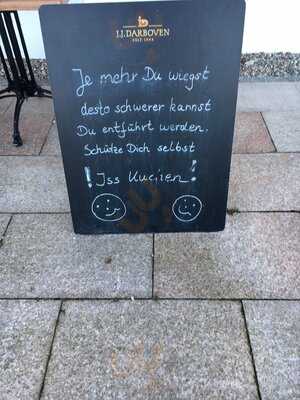 J.J. DARBOVEN
SEIT 1866
Je mehr Du wiegst
desto schwerer kannst
Du entführt werden.
Schütze Dich selbst
! Iss Kuchen !